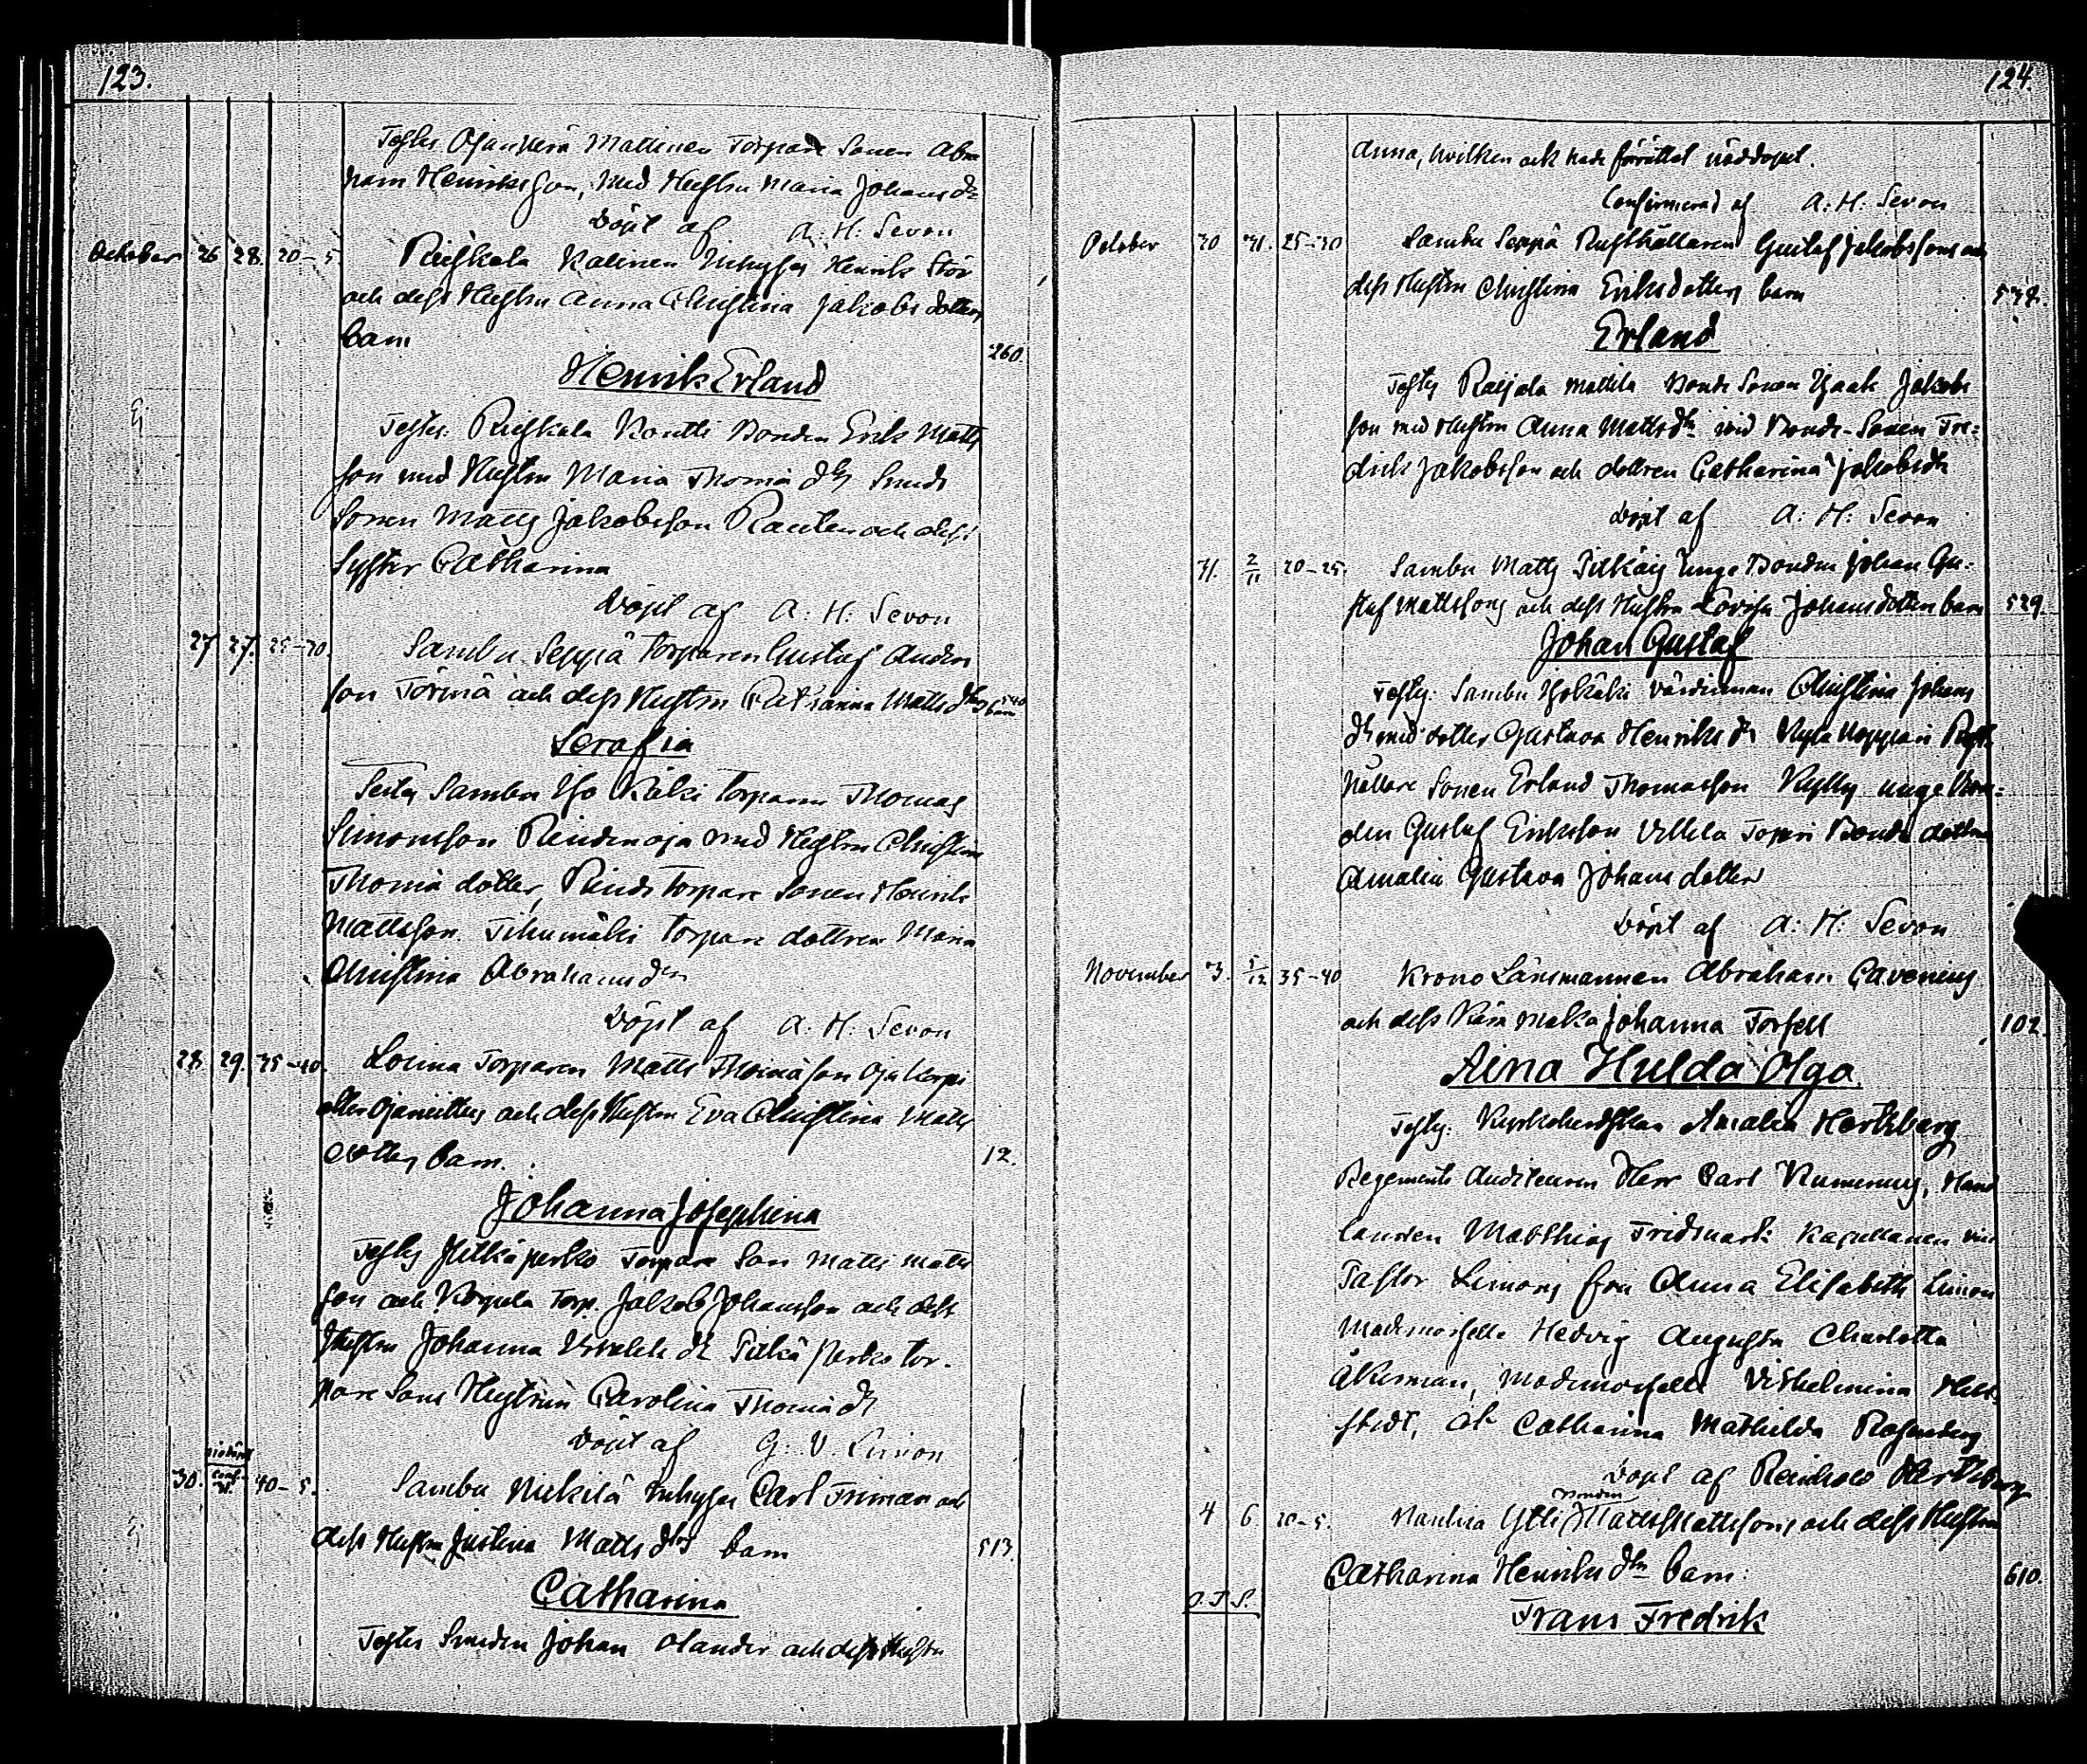 123.
Testes Ojankerä Mattinen Torpare Sonen Abra
ham Henriksson, med Hustru Maria Johansdr
Döpt af A: H: Sevon
October 26 28. 20-5 Rieskala Kalinen Inhyses Henrik Stör
och dess Hustru Anna Christina Jakobsdotters
barn 260.
Henrik Erland
Testes: Rieskala Kontti Bonden Erik Matts
son med Hustru Maria Thomä dr Smeds
Sonen Matts Jakobsson Rauten och dess
Syster Catharina
Döpt af A: H: Sevon
27 27. 25-30. Sambu Seppä Torparen Gustaf Anders
son Törmä och dess Hustru Catharina Matts drs barn 540
Serafia
Testes Sambu Iso Käki Torparen Thomas
Simonsson Rindinoja med Hustru Christina
Thomä dotter, Torpare Sonen Henrik
Mattsson. Tihumäki Torpare dottren Maria
Christina Abrahams dr
Döpt af A: H: Sevon
28. 29. 35-40. Loima Torparen Matts Thomäson Ojakorpi
eller och dess Hustru Eva Christina Matts
dotters barn. 12.
Johanna Josephina
Testes Pitkäperko Torpare Son Matts Matts
son och Torp. Jakob Johansson och dess
Hustru Johanna dr Pitkäperko tor-
pare Sons Hustrun Carolina Thomä dr
Döpt af G: V. Limon
30. Conf. 31. 40-5. Sambu Nickilä Inhyses Carl Friman och
dess Hustru Justina Matts drs barn 513.
Catharina
Testes Smeden Johan Olander och dess Hustru
124.
Anna, hvilken ock hade förrättat nöddopet.
Confirmerad af A: H: Sevon
October 30 31. 25-30 Sambu Seppä Rusthållaren Gustaf Jakobssons och
dess Hustru Christina Eriksdotters barn 538.
Erland
Testes Raijala Mattila Bonde Sonen Isaak Jakobs
son med Hustru Anna Matts dr Bonde-Sonen Fre=
drik Jakobsson och dottren Catharina Jakobsdr
Döpt af A: H: Sevon
31. 2/11 20-25. Sambu Matts Pitkäis Unge Bonden Johan Gu-
staf Mattssons och dess Hustru Lovisa Johansdotters barn 529.
Johan Gustaf
Testes: Sambu Isokäki värdinnan Christina Johans
dr med dotter Gustava Henriks dr Noppari Rust
hållare Sonen Erland Thomasson unge Bon=
den Gustaf Eriksson Ville­la Bonde dottren
Amalia Gustava Johans dotter
Döpt af A: H: Sevon
November 3. 5/12 35-40 Krono Länsmannen Abraham Cavenius
och dess Kära Maka Johanna Forsell 102.
Aina Hulda Olga
Testes: Kyrkoherdskan Amalia Hertzberg
Regements Auditeuren Herr Carl, Hand
landen Matthias Fridmark Kapellanen vice
Pastor Limons fru Anna Elisabeth Limon
Mademoiselle Hedvig Augusta Charlotta
Åkerman, Mademoiselle Vilhelmina Hell-
stedt, och Catharina Mathilda Rosenberg
Döpt af Reinhold Hertzberg
4 6. 20-5. Ylli Bonden Matts Mattssons och dess Hustru
Catharina Henriks drs barn: 610.
Frans Fredrik